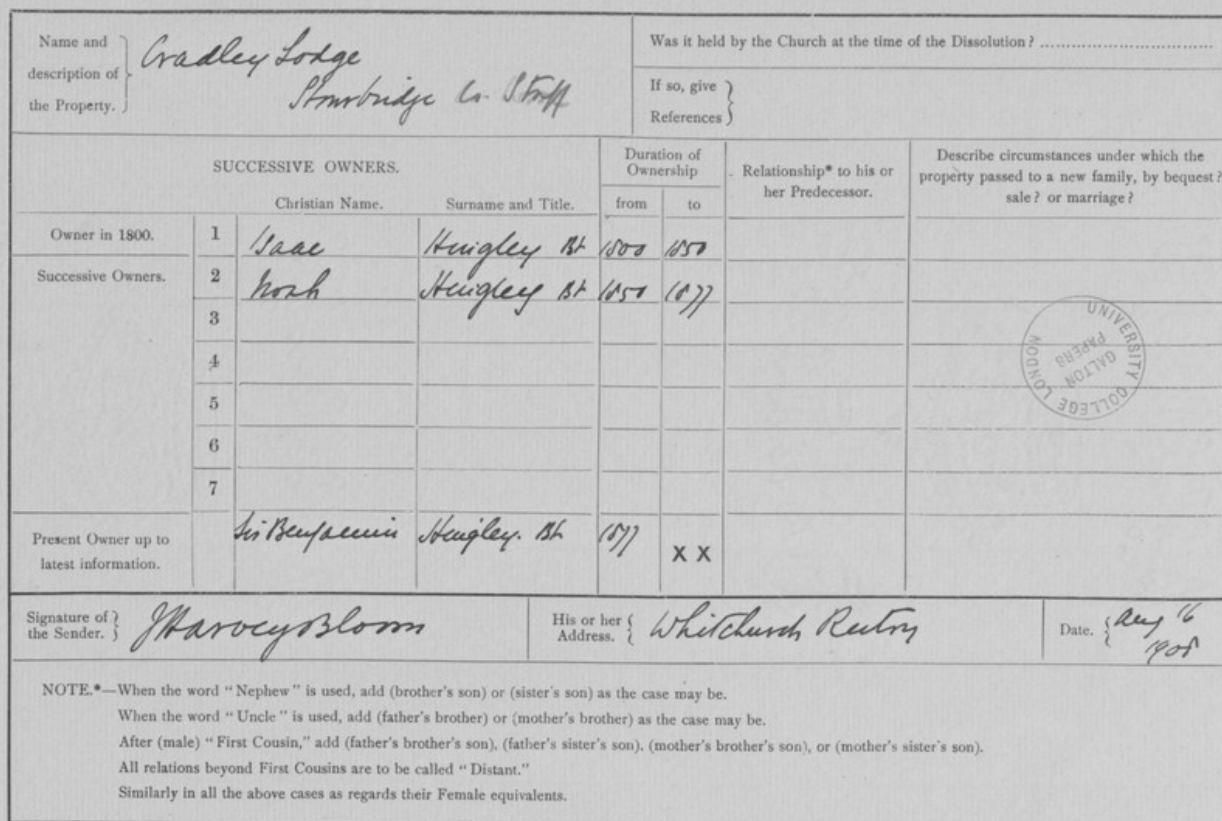 Name and description of the Property. Cradley Lodge
Stourbridge Co. Staff
Was it held by the Church at the time of the Dissolution? ..........................................
If so, give References
SUCCESSIVE OWNERS.
Duration of Ownership
Relationship* to his or her Predecessor.
Describe circumstances under which the property passed to a new family, by bequest? sale? or marriage?
Christian Name. Surname and Title. from to
Owner in 1800. 1 Isaac Hingley Bt 1800 1850
Successive Owners. 2 Noah Hingley Bt 1850 1877
3
4
5
6
7
Present Owner up to latest information. Sir Benjamin Hingley. Bt 1877 X X
UNIVERSITY COLLEGE LONDON
GALTON PAPERS
Signature of the Sender. J Harvey Bloom
His or her Address. Whitchurch Rectory
Date. Aug 16
1908
NOTE.*—When the word "Nephew" is used, add (brother's son) or (sister's son) as the case may be.
When the word "Uncle" is used, add (father's brother) or (mother's brother) as the case may be.
After (male) "First Cousin," add (father's brother's son), (father's sister's son), (mother's brother's son), or (mother's sister's son).
All relations beyond First Cousins are to be called "Distant."
Similarly in all the above cases as regards their Female equivalents.